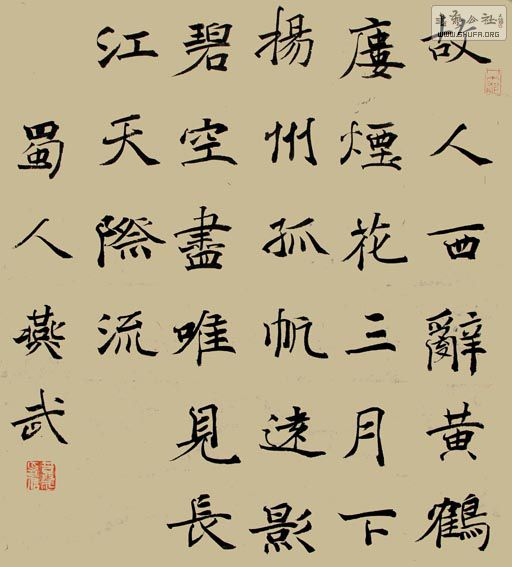 故人西辭黃鶴
廔煙花三月下
揚州孤帆遠影
碧空盡唯見長
江天際流
蜀人燕武
WWW.SHUFA.ORG